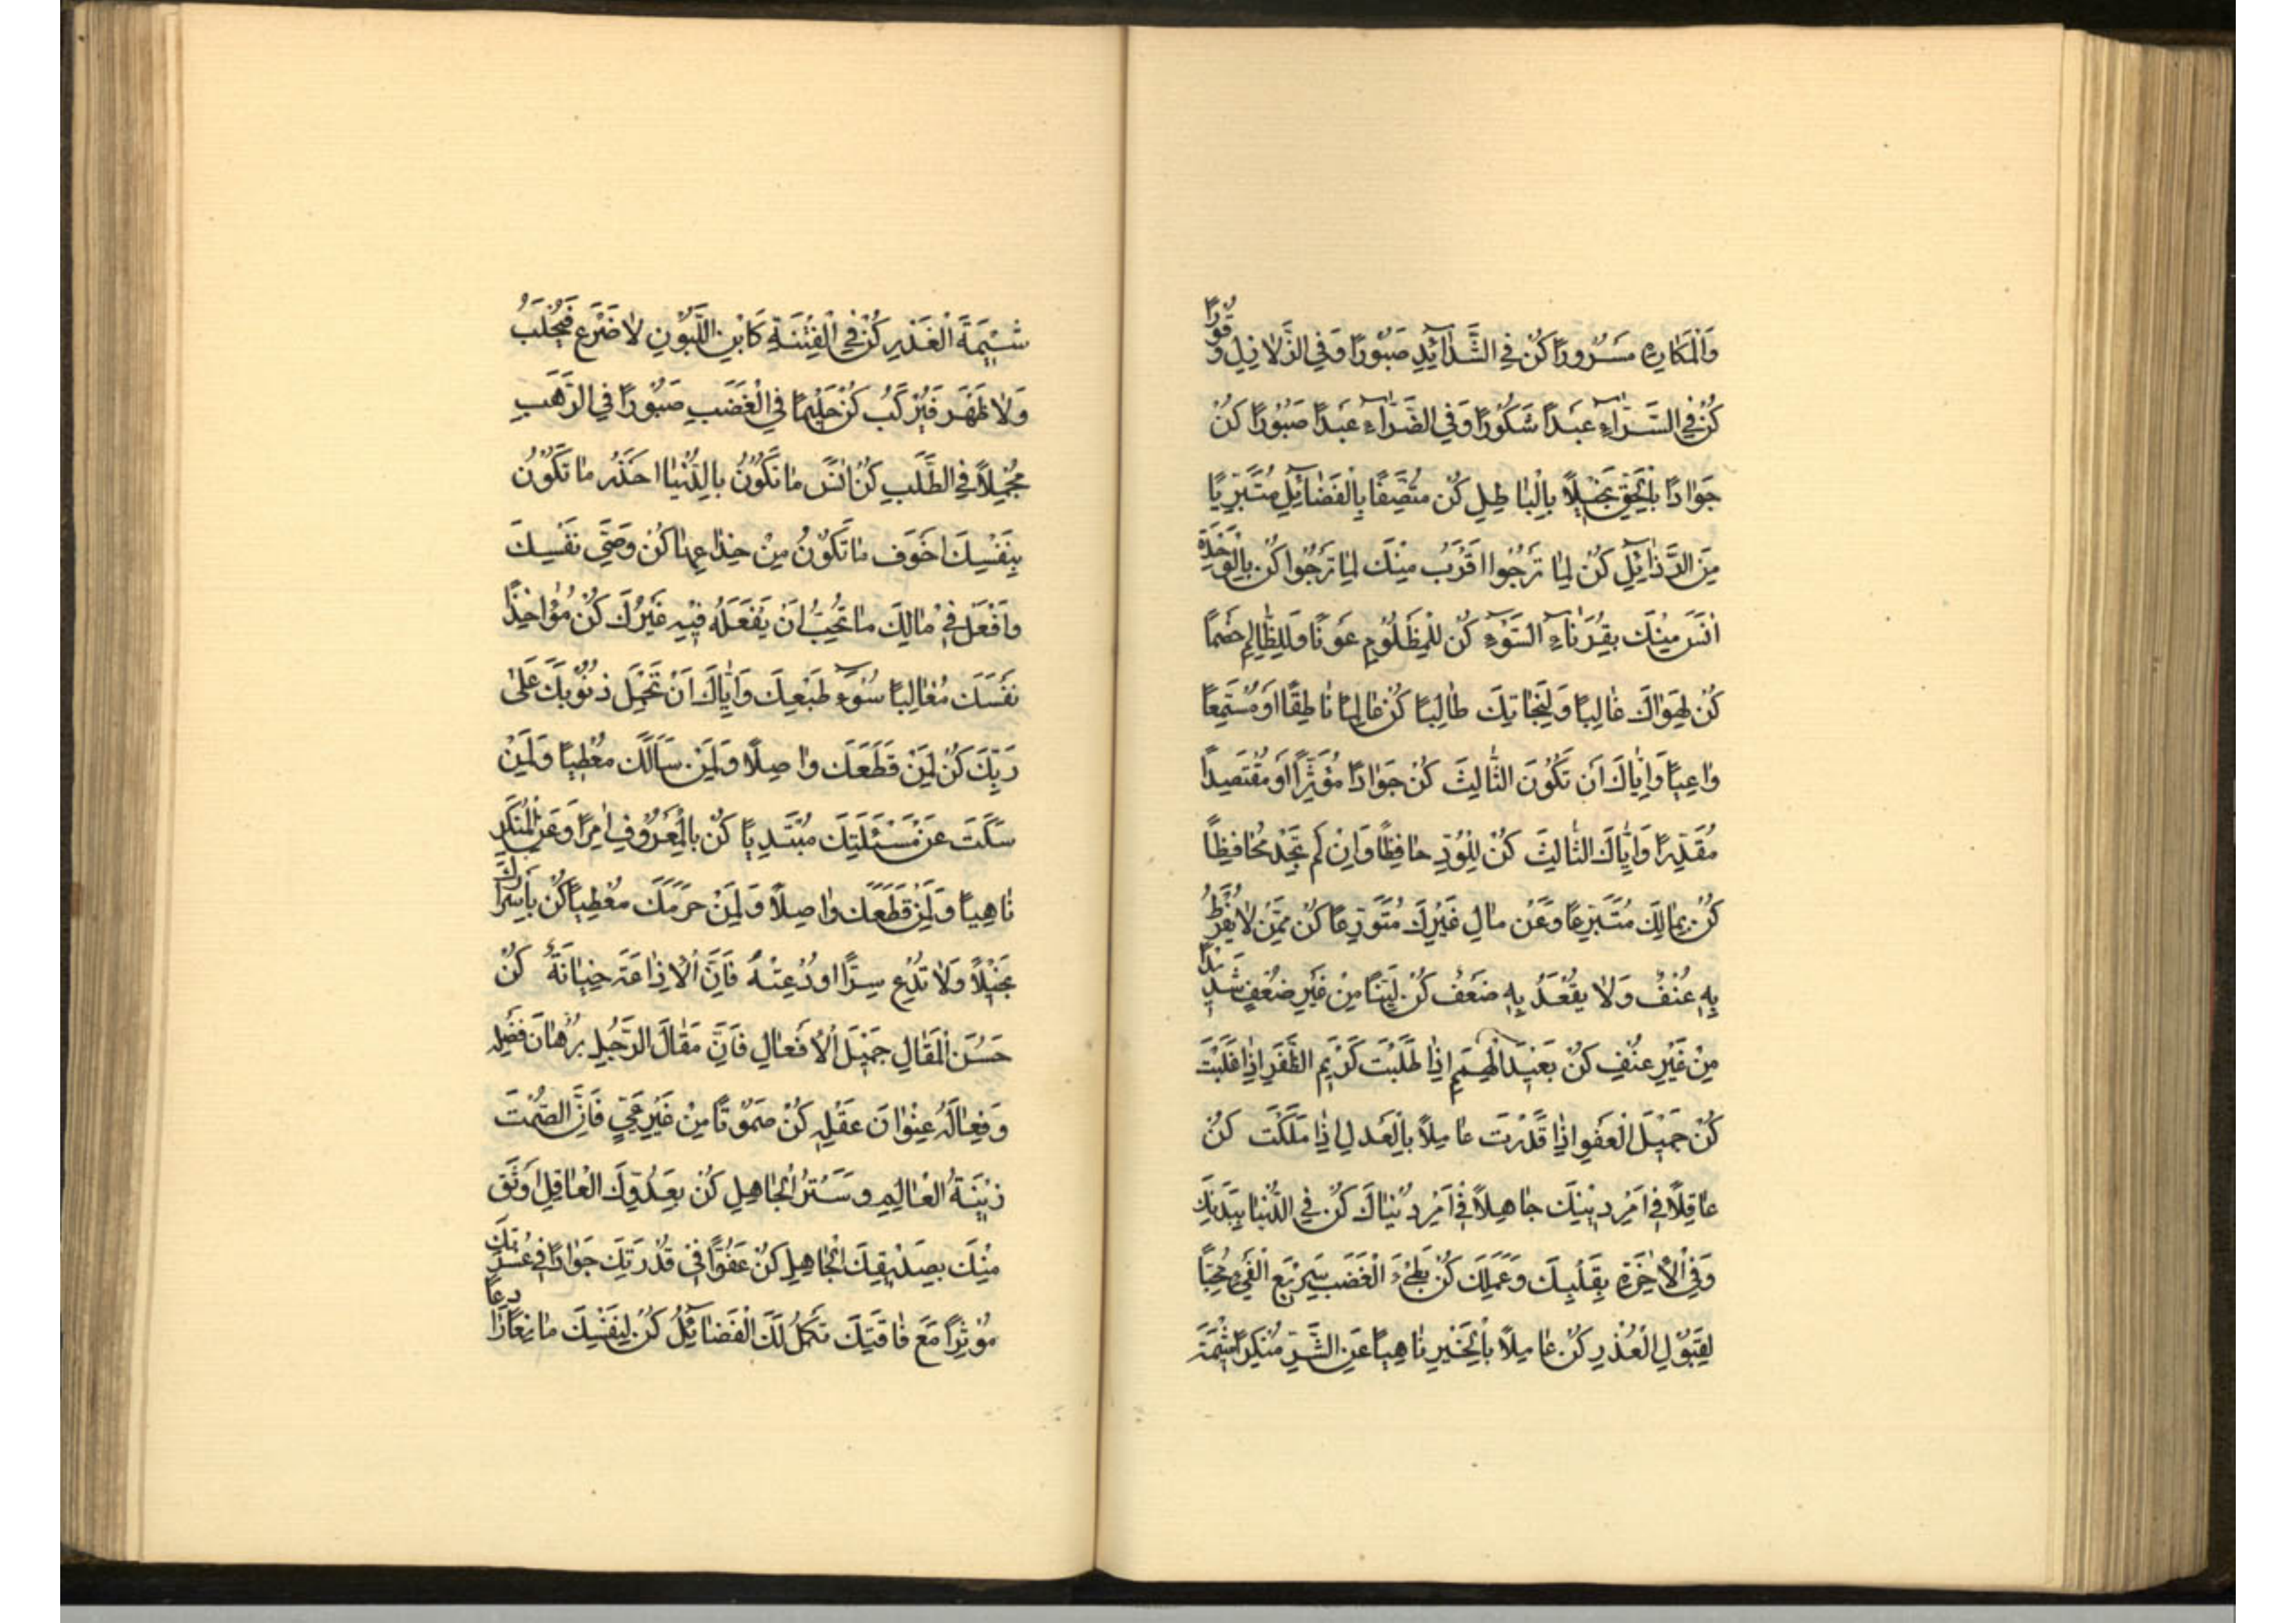 وَالْمَكارِهِ مَسْرُورًا كُنْ فِي الشَّدآئِدِ صَبُورًا وَفِي الزَّلازِلِ وَقُورًا
كُنْ فِي السَّرّآءِ عَبْدًا شَكُورًا وَفِي الضَّرّآءِ عَبْدًا صَبُورًا كُنْ
جَوادًا بِالْحَقِّ بَخيلًا بِالْباطِلِ كُنْ مُتَّصِفًا بِالْفَضآئِلِ مُتَبَرِّيًا
مِنَ الرَّذآئِلِ كُنْ لِما لا تَرْجُوا اَقْرَبُ مِنْكَ لِما تَرْجُوا كُنْ بِالْوَحْدَةِ
انَسَ مِنْكَ بِقُرَنآءِ السَّوْءِ كُنْ لِلْمَظْلُومِ عَوْنًا وَلِلظّالِمِ خَصْمًا
كُنْ لِهَواكَ غالِبًا وَلِنَجاتِكَ طالِبًا كُنْ عالِمًا ناطِقًا اَوْ مُسْتَمِعًا
واعِيًا وَاِيّاكَ اَنْ تَكُونَ الثّالِثَ كُنْ جَوادًا مُؤْثِرًا اَوْ مُقْتَصِدًا
مُقَدِّرًا وَاِيّاكَ الثّالِثَ كُنْ لِلْوُدِّ حافِظًا وَاِنْ لَمْ تَجِدْ مُحافِظًا
كُنْ بِمالِكَ مُتَبَرِّعًا وَعَنْ مالِ غَيْرِكَ مُتَوَرِّعًا كُنْ مِمَّنْ لا يُفْرِطُ
بِهِ عُنْفٌ وَلا يَقْعُدُ بِهِ ضَعْفٌ كُنْ لَيِّنًا مِنْ غَيْرِ ضَعْفٍ شَديدًا
مِنْ غَيْرِ عُنْفٍ كُنْ بَعيدَ الْهِمَمِ اِذا طَلَبْتَ كَريمَ الظَّفَرِ اِذا غَلَبْتَ
كُنْ جَميلَ الْعَفْوِ اِذا قَدَرْتَ عامِلًا بِالْعَدْلِ اِذا مَلَكْتَ كُنْ
عاقِلًا في اَمْرِ دينِكَ جاهِلًا في اَمْرِ دُنْياكَ كُنْ فِي الدُّنْيا بِبَدَنِكَ
وَفِي الْاخِرَةِ بِقَلْبِكَ وَعَمَلِكَ كُنْ بَطيءَ الْغَضَبِ سَريعَ الْفَيْءِ مُحِبًّا
لِقَبُولِ الْعُذْرِ كُنْ عامِلًا بِالْخَيْرِ ناهِيًا عَنِ الشَّرِّ مُنْكِرًا شيمَةَ
شيمَةَ الْغَدْرِ كُنْ فِي الْفِتْنَةِ كَابْنِ اللَّبُونِ لا ضَرْعٌ فَيُحْلَبُ
وَلا ظَهْرٌ فَيُرْكَبُ كُنْ حَليمًا فِي الْغَضَبِ صَبُورًا فِي الرَّهَبِ
مُجْمِلًا فِي الطَّلَبِ كُنْ انَسَ ما تَكُونُ بِالدُّنْيا اَحْذَرَ ما تَكُونُ
بِنَفْسِكَ اَخْوَفَ ما تَكُونُ مِنْ خِداعِها كُنْ وَصِيَّ نَفْسِكَ
وَافْعَلْ في مالِكَ ما تُحِبُّ اَنْ يَفْعَلَهُ فيهِ غَيْرُكَ كُنْ مُؤاخِذًا
نَفْسَكَ مُغالِبًا سُوءَ طَبْعِكَ وَاِيّاكَ اَنْ تَحْمِلَ ذُنُوبَكَ عَلى
رَبِّكَ كُنْ لِمَنْ قَطَعَكَ واصِلًا وَلِمَنْ سَاَلَكَ مُعْطِيًا وَلِمَنْ
سَكَتَ عَنْ مَسْئَلَتِكَ مُبْتَدِيًا كُنْ بِالْمَعْرُوفِ امِرًا وَعَنِ الْمُنْكَرِ
ناهِيًا وَلِمَنْ قَطَعَكَ واصِلًا وَلِمَنْ حَرَمَكَ مُعْطِيًا كُنْ بِاَسْرارِكَ
بَخيلًا وَلا تُذِعْ سِرًّا اُودِعْتَهُ فَاِنَّ الْاِذاعَةَ خِيانَةٌ كُنْ
حَسَنَ الْمَقالِ جَميلَ الْاَفْعالِ فَاِنَّ مَقالَ الرَّجُلِ بُرْهانُ فَضْلِهِ
وَفِعالَهُ عِنْوانُ عَقْلِهِ كُنْ صَمُوتًا مِنْ غَيْرِ عِيٍّ فَاِنَّ الصَّمْتَ
زينَةُ الْعالِمِ وَسَتْرُ الْجاهِلِ كُنْ بِعَدُوِّكَ الْعاقِلِ اَوْثَقَ
مِنْكَ بِصَديقِكَ الْجاهِلِ كُنْ عَفُوًّا في قُدْرَتِكَ جَوادًا في عُسْرَتِكَ
مُؤْثِرًا مَعَ فاقَتِكَ تَكْمُلُ لَكَ الْفَضآئِلُ كُنْ لِنَفْسِكَ مانِعًا رادِعًا